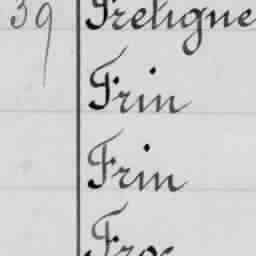 39 Freligne
Frin
Frin